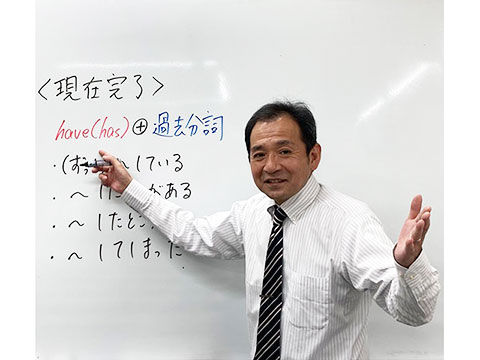 <現在完了>
have(has)⊕過去分詞
・(ず 〜している
・〜した がある
・〜したと
・〜してしまった